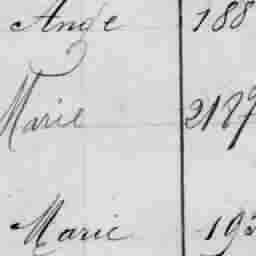 Ange 188
Marie 2187
Marie 193